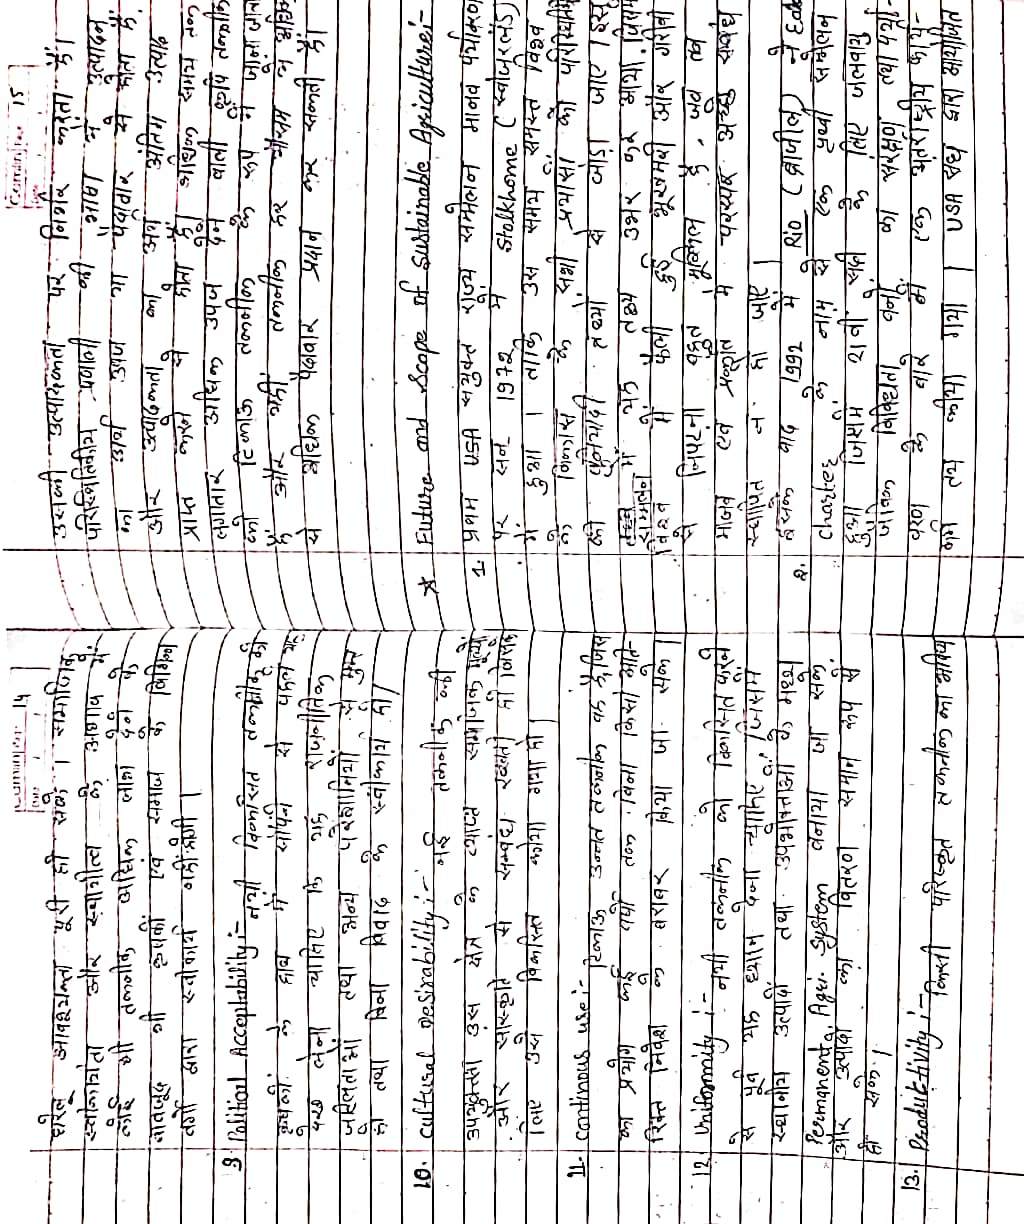 14
घरेलू आवश्यकता पूरी हो सके। सामाजिक
स्वीकार्यता और स्थायीत्व के अभाव में
कोई भी तकनीक अधिक लाभ देने के
बावजूद भी कृषकों एवं समाज के विभिन्न
वर्गो द्वारा स्वीकार्य नहीं होगी।
9. Political Acceptability :- नयी विकसित तकनीक को
कृषकों के हाथ में सौंपने से पहले यह
देख लेना चाहिए कि वह राजनीतिक
जटिलताओं तथा अन्य परेशानियों से मुक्त
हो तथा बिना विवाद के स्वीकार्य हो।
10. Cultural Desirability :- नई तकनीक की
उपयुक्तता उस क्षेत्र के व्याप्त सामाजिक मूल्यों
और संस्कृति से सम्बंध रखती हो जिसके
लिए उसे विकसित किया गया हो।
11. Continous use :- टिकाऊ उन्नत तकनीक वह है जिस
का प्रयोग कई वर्षो तक बिना किसी अति-
रिक्त निवेश के बराबर किया जा सके।
12. Uniformity :- नयी तकनीक को विकसित करने
से पूर्व यह ध्यान देना चाहिए कि जिससे
स्थानीय उत्पादों तथा उपभोक्ताओं के मध्य
Permanent Agri. System बनाया जा सके
और उत्पादों का वितरण समान रूप से
हो सके।
13. Produktivity :- किसी परिस्कृत तकनीक का भविष्य
15
उसकी उत्पादकता पर निर्भर करता है।
पारिस्थितिकीय प्रणाली की उत्पादन
का
और उर्वरकता का अंतिम उत्पाद
प्राप्त करने से होता है। अधिक समय तक
लगातार अधिक उपज देने वाली कृषि तकनीक
को टिकाऊ तकनीक के रूप में जाना जाता
है और यही तकनीक हर मौसम में अधिक
से अधिक पैदावार प्रदान कर सकती है।
* Future and Scope of Sustainable Agriculture :-
1. प्रथम USA सयुक्त राज्य सम्मेलन मानव पर्यावरण
पर सन् 1972 में Stalkhome (स्वीजरलैंड)
में हुआ। ताकि उस समय समस्त विश्व
के विकास के सभी प्रयासो को पारिस्थितिकी
की बुनियादी तथ्यों से जोडा जाए। इस
सम्मेलन में यह तथ्य उभर कर आया जिसमें
विश्व में फैली हुई भूखमरी और गरीबी
से निपटना बहुत मुश्किल है, जब तक
मानव एवं प्रकृति में परस्पर अच्छे संबंध
स्थापित न हो जाए।
2. इसके बाद 1992 में Rio (ब्राजील) में Earth
Charter के नाम से एक पृथ्वी सम्मेलन
हुआ जिसमें 21वीं सदी के लिए जलवायु
जैविक विविधता वनों का संरक्षण तथा पर्या-
वरण के बारे में एक अंतराष्ट्रीय कार्य-
क्रम तय किया गया। USA संघ द्वारा आयोजित